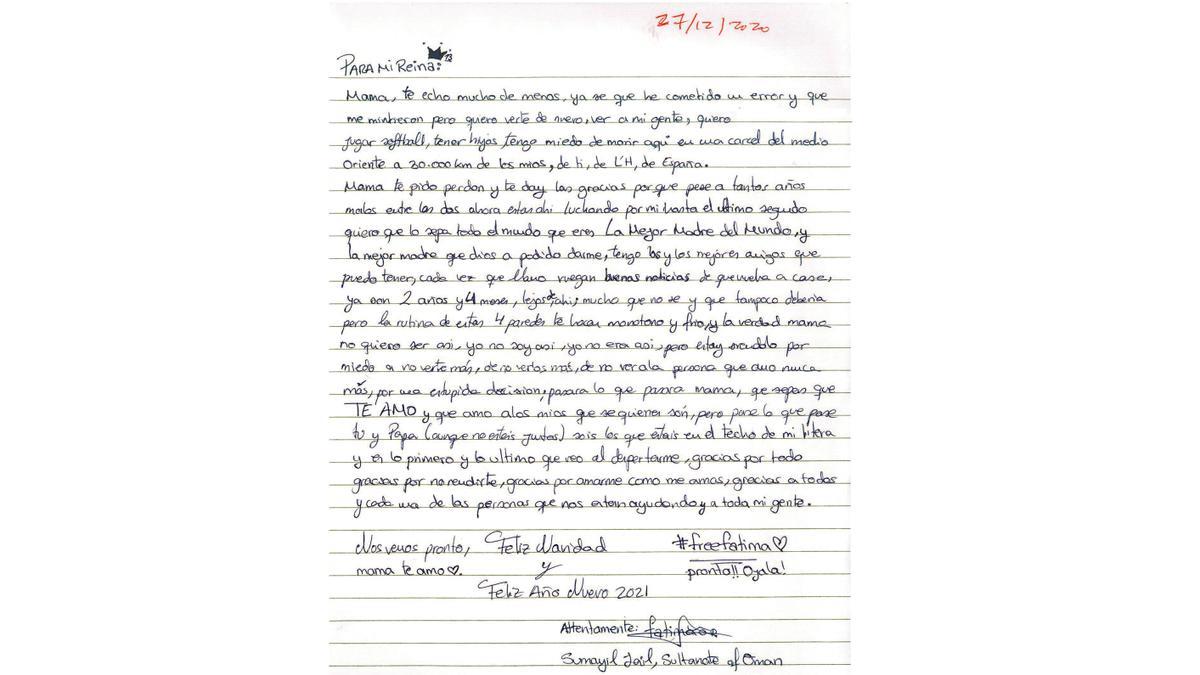 27/12/2020
PARA Mi Reina:
Mama, te echo mucho de menos, ya se que he cometido un error y que
me mintieron pero quiero verte de nuevo, ver a mi gente, quiero
jugar softball, tener hijos, tengo miedo de morir aqui en una carcel del medio
Oriente a 30.000 km de los mios, de ti, de L'H, de España.
Mama te pido perdon y te doy las gracias por que pese a tantos años
malos entre las dos ahora estas ahi luchando por mi hasta el ultimo segundo
quiero que lo sepa todo el mundo que eres La Mejor Madre del Mundo, y
la mejor madre que dios a podido darme, tengo las y los mejores amigos que
puedo tener, cada vez que llamo ruegan buenas noticias de que vuelva a casa,
ya son 2 años y 4 meses, lejos de ahi, mucho que no se y que tampoco deberia
pero la rutina de estas 4 paredes te hacen monotono y frio, y la verdad mama
no quiero ser asi, yo no soy asi, yo no era asi, pero estoy siendolo por
miedo a no verte más, de no verlos más, de no ver a la persona que amo nunca
más, por una estupida decision, pasara lo que pasara mama, qe sepas que
TE AMO y que amo a los mios que se quienes són, pero pase lo que pase
tu y Papa (aunqe no esteis juntos) sois los que estais en el techo de mi litera
y es lo primero y lo ultimo que veo al despertarme, gracias por todo
gracias por no rendirte, gracias por amarme como me amas, gracias a todas
y cada una de las personas que nos estan ayudando y a toda mi gente.
Nos vemos pronto, Feliz Navidad #freefatima♡
mama te amo♡. y pronto!! Ojala!
Feliz Año Nuevo 2021
Attentamente: fatima
Sumayil Jail, Sultanate of Oman